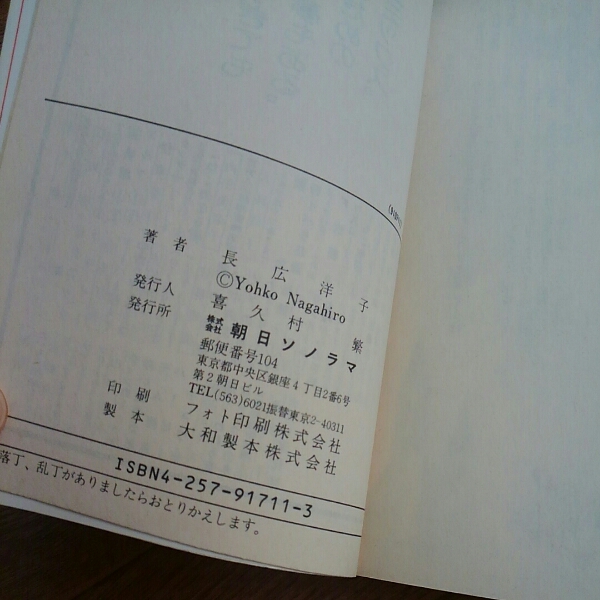 著者 長広洋子
©Yohko Nagahiro
発行人 喜久村繁
発行所 株式会社 朝日ソノラマ
郵便番号104
東京都中央区銀座4丁目2番6号
第2朝日ビル
TEL(563)6021振替東京2-40311
印刷 フォト印刷株式会社
製本 大和製本株式会社
ISBN4-257-91711-3
落丁、乱丁がありましたらおとりかえします。